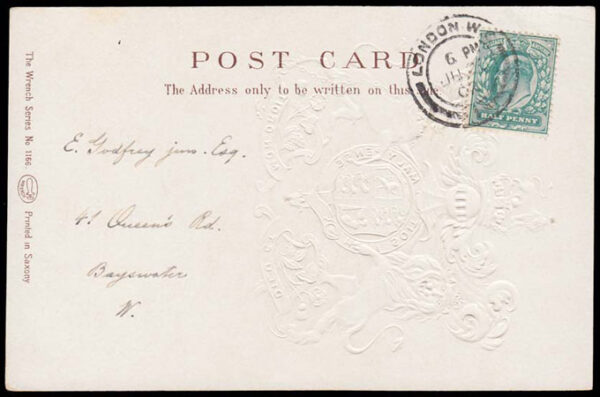 POST CARD
The Address only to be written on this side
LONDON W
6 PM
HALF PENNY
E. Godfrey junr. Esq.
41 Queen's Rd.
Bayswater
W.
The Wrench Series No 1166.
Printed in Saxony